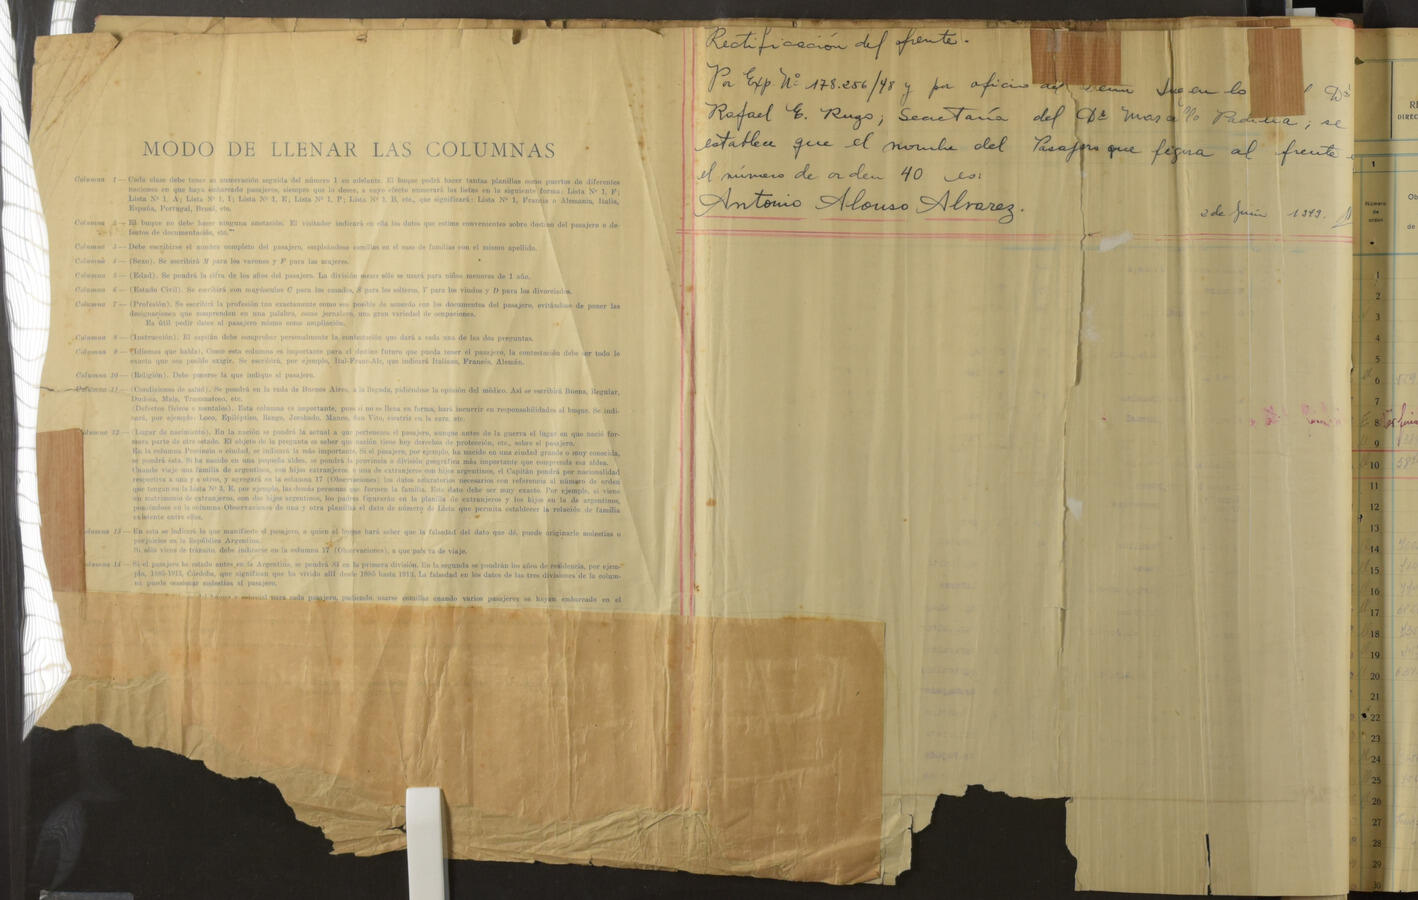 MODO DE LLENAR LAS COLUMNAS
Columna 1 — Cada clase debe tener su numeración seguida del número 1 en adelante. El buque podrá hacer tantas planillas como puertos de diferentes
naciones en que haya embarcado pasajeros, siempre que lo desee, a cuyo efecto enumerará las listas en la siguiente forma: Lista Nº 1, F;
Lista Nº 1, A; Lista Nº 1, I; Lista Nº 1, E; Lista Nº 1, P; Lista Nº 1, B, etc., que significará: Lista Nº 1, Francia o Alemania, Italia,
España, Portugal, Brasil, etc.
Columna 2 — El buque no debe hacer ninguna anotación. El visitador indicará en ella los datos que estime convenientes sobre destino del pasajero o de-
fectos de documentación, etc.
Columna 3 — Debe escribirse el nombre completo del pasajero, empleándose comillas en el caso de familias con el mismo apellido.
Columna 4 — (Sexo). Se escribirá M para los varones y F para las mujeres.
Columna 5 — (Edad). Se pondrá la cifra de los años del pasajero. La división meses sólo se usará para niños menores de 1 año.
Columna 6 — (Estado Civil). Se escribirá con mayúsculas C para los casados, S para los solteros, V para los viudos y D para los divorciados.
Columna 7 — (Profesión). Se escribirá la profesión tan exactamente como sea posible de acuerdo con los documentos del pasajero, evitándose de poner las
designaciones que comprenden en una palabra, como jornalero, una gran variedad de ocupaciones.
Es útil pedir datos al pasajero mismo como ampliación.
Columna 8 — (Instrucción). El capitán debe comprobar personalmente la contestación que dará a cada una de las dos preguntas.
Columna 9 — (Idiomas que habla). Como esta columna es importante para el destino futuro que pueda tener el pasajero, la contestación debe ser todo lo
exacta que sea posible exigir. Se escribirá, por ejemplo, Ital-Franc-Alz, que indicará Italiano, Francés, Alemán.
Columna 10 — (Religión). Debe ponerse la que indique el pasajero.
Columna 11 — (Condiciones de salud). Se pondrá en la rada de Buenos Aires, a la llegada, pidiéndose la opinión del médico. Así se escribirá Buena, Regular,
Dudosa, Mala, Traumatoso, etc.
(Defectos físicos o mentales). Esta columna es importante, pues si no se llena en forma, hará incurrir en responsabilidades al buque. Se indi-
cará, por ejemplo: Loco, Epiléptico, Rengo, Jorobado, Manco, San Vito, cicatriz en la cara, etc.
Columna 12 — (Lugar de nacimiento). En la nación se pondrá la actual a que pertenezca el pasajero, aunque antes de la guerra el lugar en que nació for-
mara parte de otro estado. El objeto de la pregunta es saber qué nación tiene hoy derechos de protección, etc., sobre el pasajero.
En la columna Provincia o ciudad, se indicará la más importante. Si el pasajero, por ejemplo, ha nacido en una ciudad grande o muy conocida,
se pondrá ésta. Si ha nacido en una pequeña aldea, se pondrá la provincia o división geográfica más importante que comprenda esa aldea.
Cuando viaje una familia de argentinos, con hijos extranjeros o una de extranjeros con hijos argentinos, el Capitán pondrá por nacionalidad
respectiva a una y a otros, y agregará en la columna 17 (Observaciones) los datos aclaratorios necesarios con referencia al número de orden
que tengan en la Lista Nº 3, E, por ejemplo, las demás personas que formen la familia. Este dato debe ser muy exacto. Por ejemplo, si viene
un matrimonio de extranjeros, con dos hijos argentinos, los padres figurarán en la planilla de extranjeros y los hijos en la de argentinos,
poniéndose en la columna Observaciones de una y otra planilla el dato de número de Lista que permita establecer la relación de familia
existente entre ellos.
Columna 13 — En ésta se indicará lo que manifieste el pasajero, a quien el buque hará saber que la falsedad del dato que dé, puede originarle molestias o
perjuicios en la República Argentina.
Si sólo viene de tránsito debe indicarse en la columna 17 (Observaciones), a que país va de viaje.
Columna 14 — Si el pasajero ha estado antes en la Argentina, se pondrá Sí en la primera división. En la segunda se pondrán los años de residencia, por ejem-
plo, 1895-1913, Córdoba, que significan que ha vivido allí desde 1895 hasta 1913. La falsedad en los datos de las tres divisiones de la colum-
na puede ocasionar molestias al pasajero.
para cada pasajero, pudiendo usarse comillas cuando varios pasajeros se hayan embarcado en el
Rectificación del frente.
Por Exp. Nº 178.256/48 y por oficio del
Rafael E. Rugo; Secretaría del Dr. Padilla; se
establece que el nombre del Pasajero que figura al frente
el número de orden 40 es:
Antonio Alonso Alvarez.
2 de Junio 1949.
DIREC
Número
de
orden
Ob
de
1
1
2
3
4
5
6
7
8
9
10
11
12
13
14
15
16
17
18
19
20
21
22
23
24
25
26
27
28
29
30